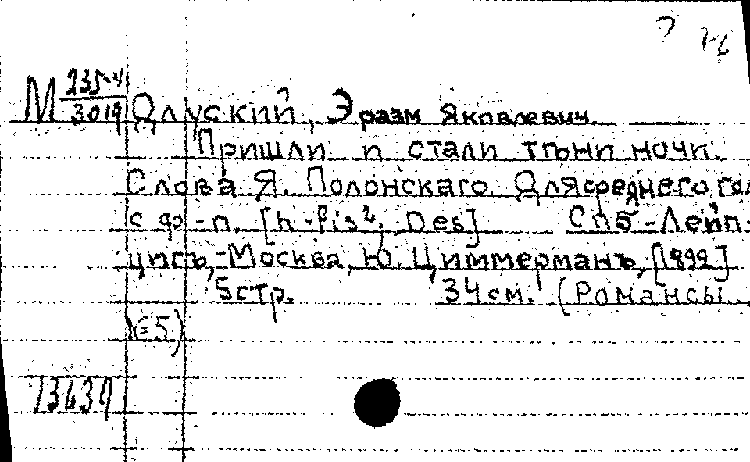 М 235-4
3019 Длуский, Эразм Яковлевич.
Пришли и стали тѣни ночи.
Слова Я. Полонскаго. Для среднего гол
с фо-п. [h-fis², Des] СПБ-Лейп-
цигъ,-Москва, Ю. Циммерманъ, [1899]
5стр. 34см. (Романсы
№5)
13639